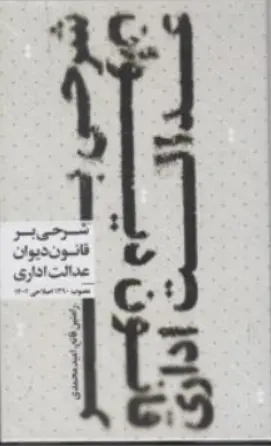 شرحی بر
قانون دیوان
عدالت اداری
شرحی بر
قانون دیوان
عدالت اداری
مصوب ۱۳۹۰ اصلاحی ۱۴۰۲
رامتین قانع، امید محمدی